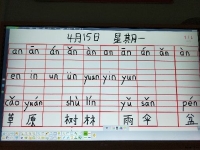 4月15日 星期一
an ān án ǎn àn an ān án ǎn àn
en in un ün yuan yin yun
cǎo yuán shù lín yǔ sǎn pén
草 原 树 林 雨 伞 盆